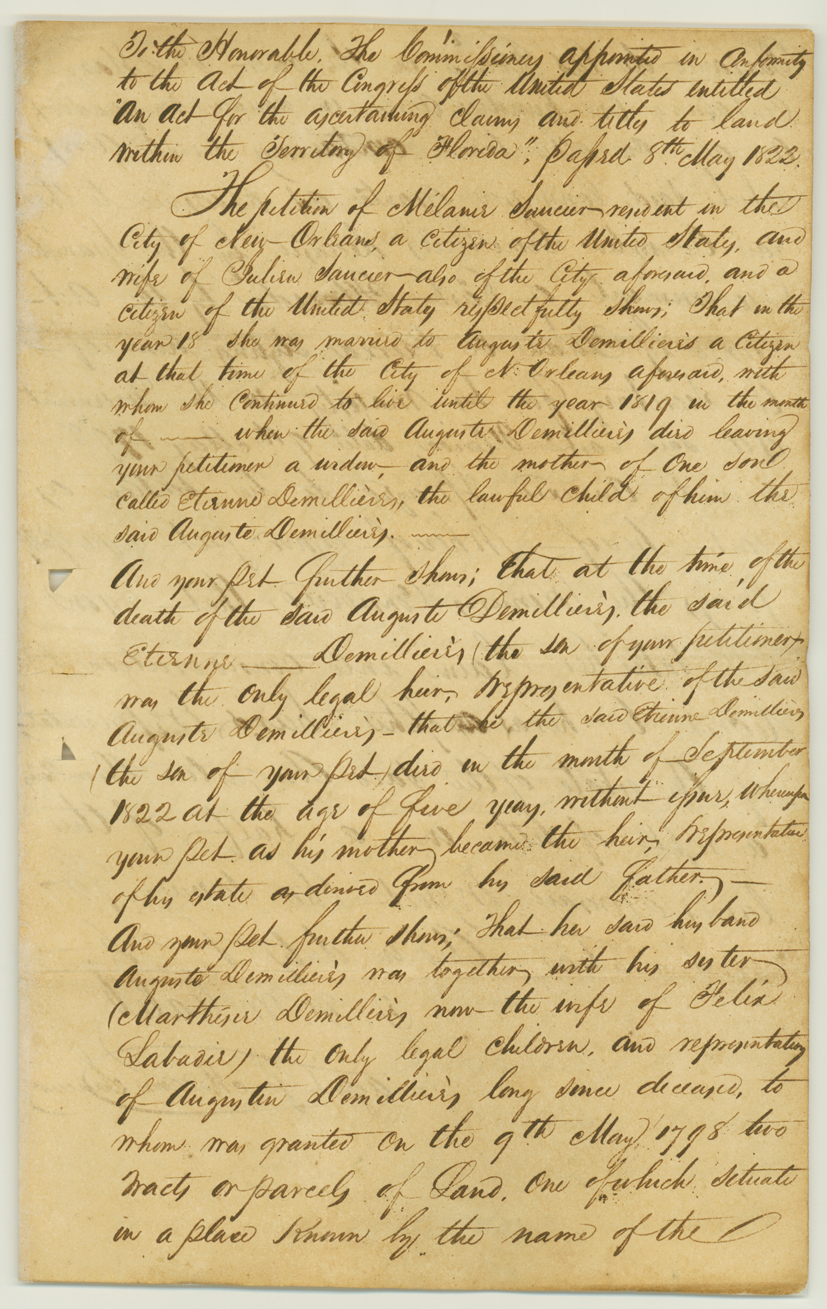 To the Honorable, The Commissioners appointed in Conformity
to the Act of the Congress of the United States entitled
"An Act for the ascertaining claims and titles to land
within the Territory of Florida", passed 8th May 1822.
The petition of Mélanie Saucier resident in the
City of New-Orleans, a citizen of the United States, and
wife of Julien Saucier also of the City aforesaid, and a
citizen of the United States respectfully shows; That in the
year 18 she was married to Auguste Demillières a Citizen
at that time of the City of N. Orleans aforesaid, with
whom she continued to live until the year 1819 in the month
of when the said Auguste Demillières died leaving
your petitioner a widow, and the mother of One son
called Etienne Demillières, the lawful child of him the
said Auguste Demillières.
And your Pet. further shows; that at the time of the
death of the said Auguste Demillières, the said
Etienne Demillières (the son of your petitioner)
was the only legal heir, & representative of the said
Auguste Demillières - that he the said Etienne Demillières
(the son of your Pet.) died in the month of September
1822 at the age of five years, without issue, Whereupon
your Pet. as his mother, became the heir, & representative
of his estate as derived from his said father. —
And your Pet. further shows; That her said husband
Auguste Demillières was together, with his sister
(Marthese Demillières now the wife of Felix
Labadie) the only legal children, and representatives
of Augustin Demillières long since deceased, to
whom was granted on the 9th May 1798 two
tracts or parcels of Land, One of which situate
in a place Known by the name of the